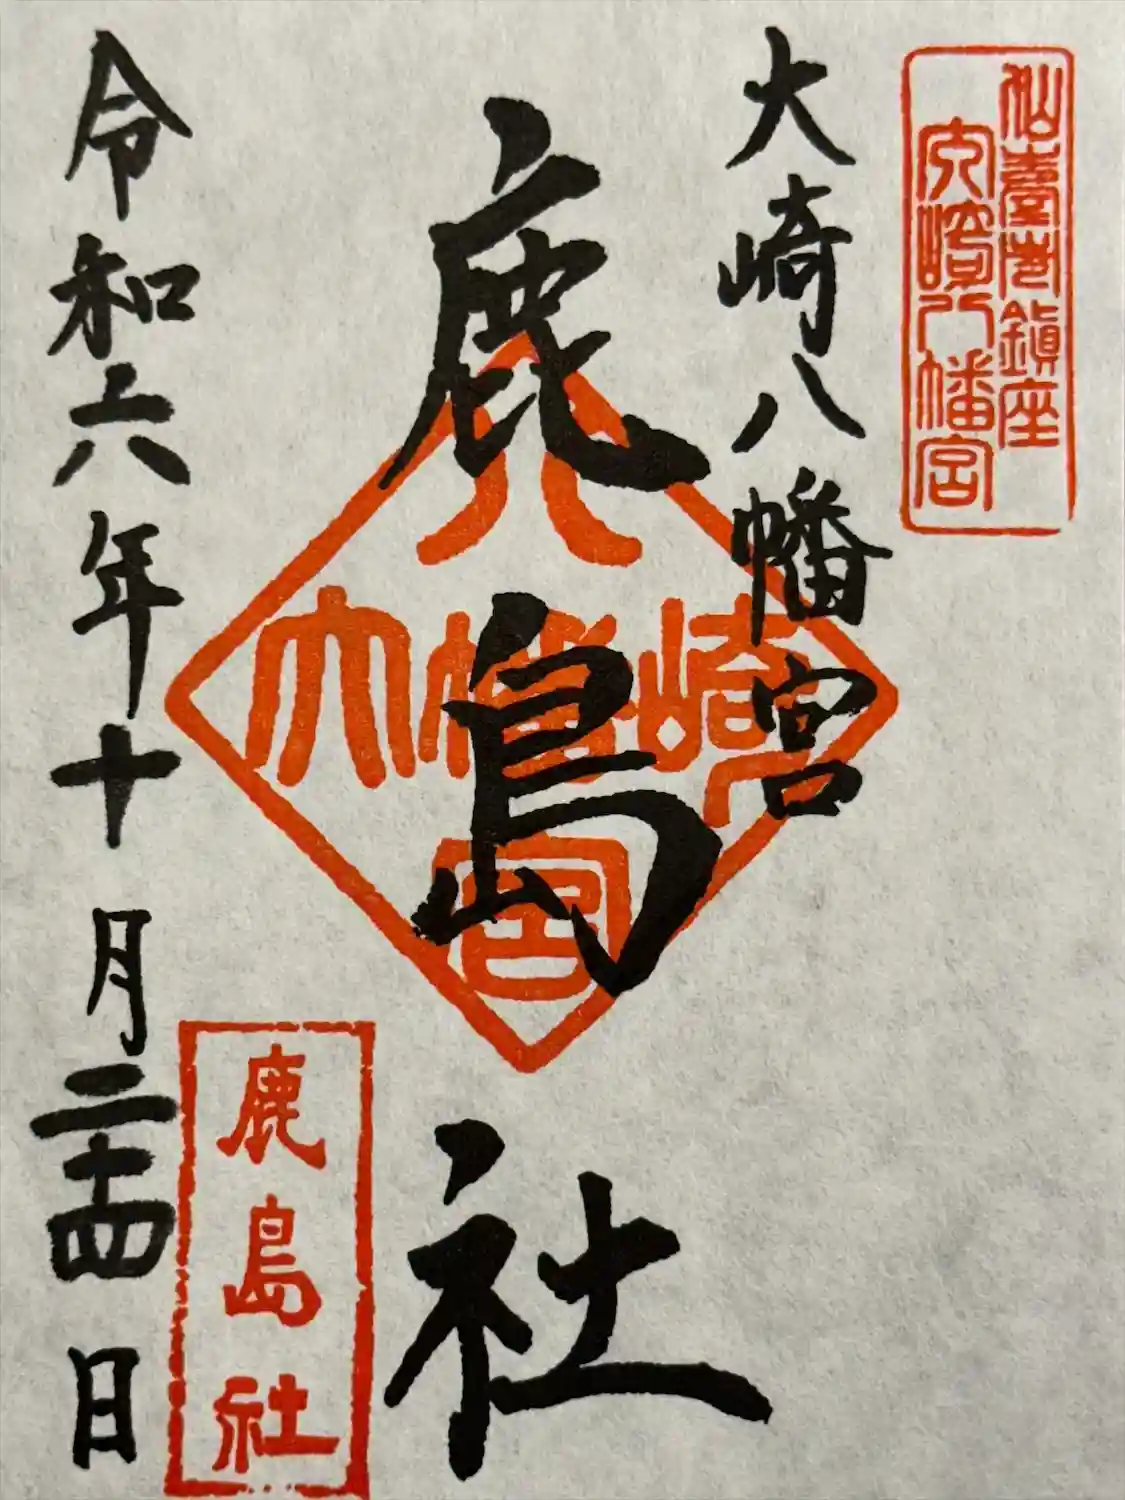 仙臺市鎮座
大崎八幡宮
大崎八幡宮
鹿島社
八
大幡崎
宮
令和六年十月二十四日
鹿島社